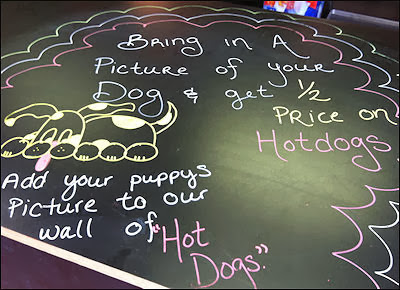 Bring in A
Picture of your
Dog & get ½
Price on
Hotdogs
Add your puppys
Picture to our
wall of "Hot
Dogs."